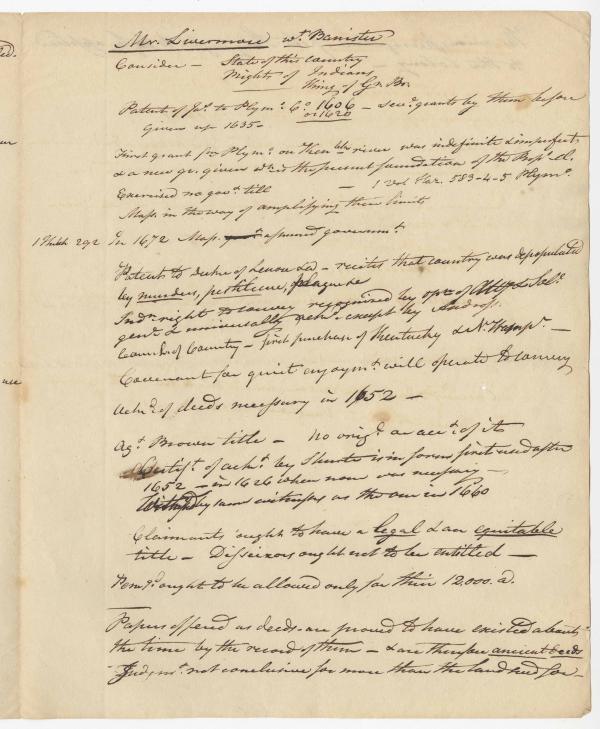 Mr. Livermore wt. Banister
Consider — State of this Country
Rights of Indians
King of Gt. Br.
Patent of Jas. to Plymo. Co. 1606 — sevl. grants by them before
or 1620
Given up 1635 —
First grant for Plymo. on Kenbk. river was indefinite & imperfect
& a new gr. given wh. is the present foundation of the
Exercised no govt. till — 1 Vol Haz. 583-4-5 Plymo.
Mass. in the way of amplifying their limits
1 Hutch 292 In 1672 Mass. assumed governmt.
Patent to duke of — recites that country was depopulated
by murders, pestilence, & plague &c
Indn. right to convey recognized by opn. of Atty & Solr.
genl. & universally ackd. except by Andros.
Council of Country — first purchase of Kentucky & N. Hampr. —
Covenant for quiet enjoymt. will operate to convey
Ackn. of deeds necessary in 1652 —
Agt. Brown title — no origl. or acct. of it
Certift. of acknt. by Shurte is in form first used after
1652 — in 1626 when none was necessary —
by same witnesses as the one in 1660
Claimants ought to have a legal & an equitable
title — Disseizors ought not to be entitled —
ought to be allowed only for their 12,000. a.
Papers offered as deeds are proved to have existed about
the time by the record of them — & are therefore ancient deeds
Judgmt. not conclusive for more than the land sued for —